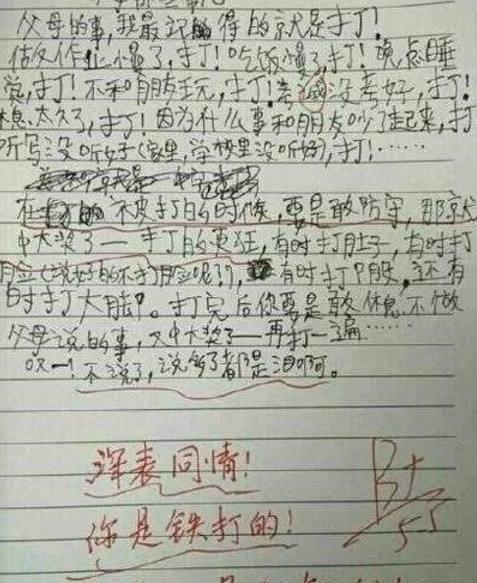 父母的事,我最记得的就是打!
做作业慢了,打!吃饭慢了,打!晚点睡
觉,打!不和朋友玩,打!考试没考好,打!
休息太久了,打!因为什么事和朋友吵了起来,打
听写没听好(家里,学校里没听好),打!……
在 被打的时候,要是敢防守,那就
中大奖了——打的更狂,有时打肚子,有时打
脸(说好的不打脸呢!?),有时打腿,还有
时打大腿。打完后你要是敢休息不做
父母说的事,又中大奖了——再打一遍……
哎—!不说了,说多了都是泪啊。
深表同情!
你是铁打的!
B+